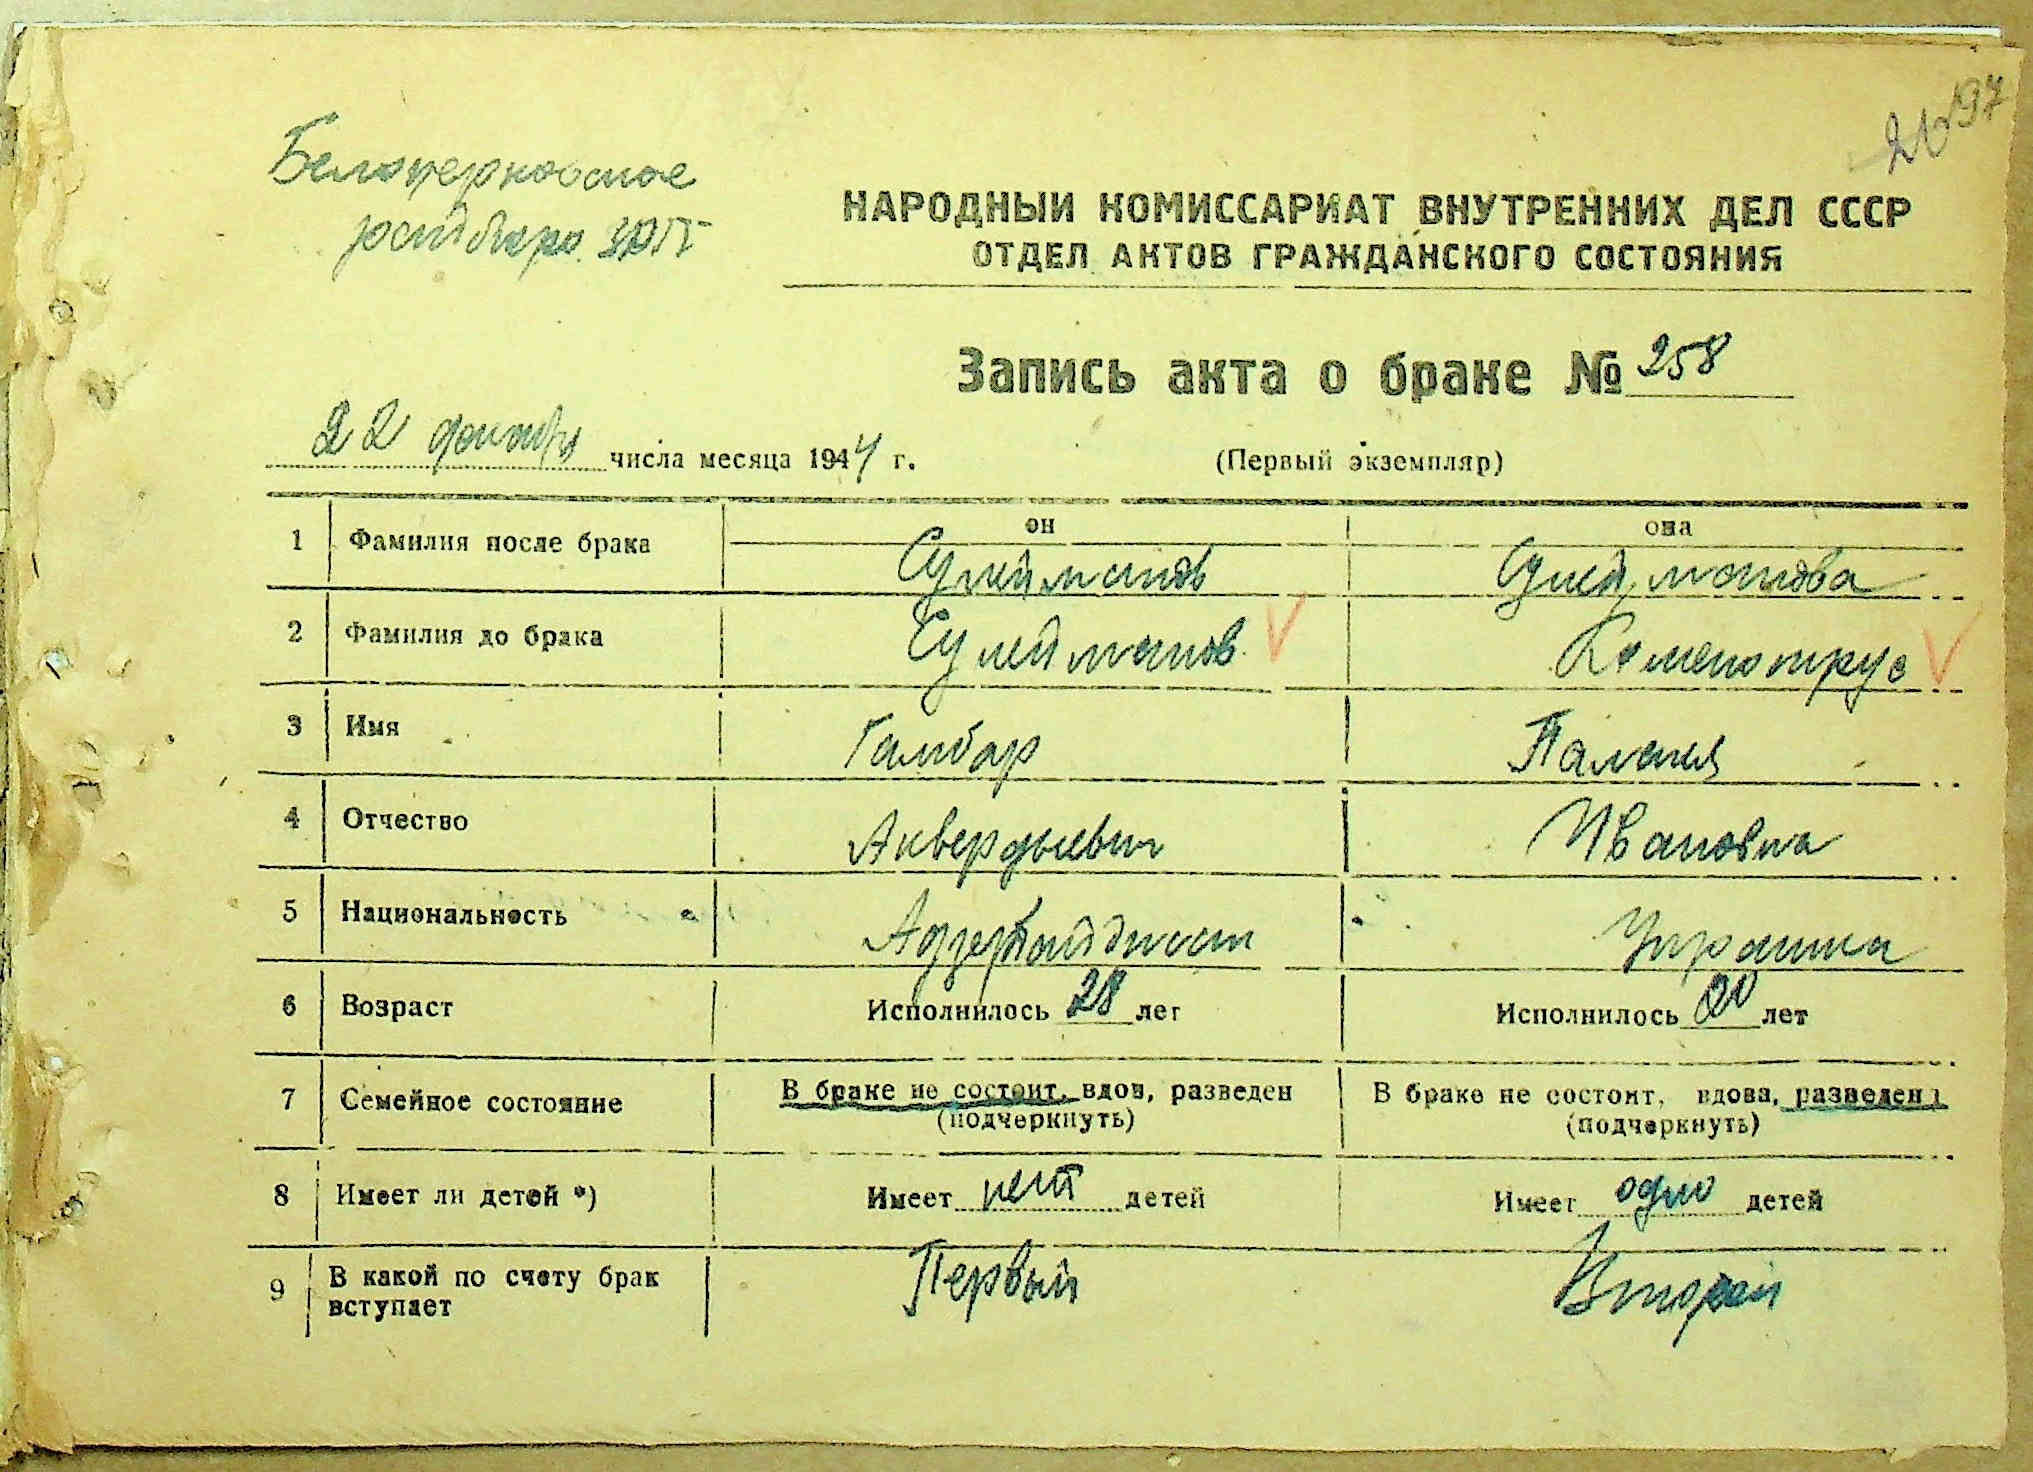 197
Белоцерковское
горбюро ЗАГС
НАРОДНЫЙ КОМИССАРИАТ ВНУТРЕННИХ ДЕЛ СССР
ОТДЕЛ АКТОВ ГРАЖДАНСКОГО СОСТОЯНИЯ
Запись акта о браке № 258
22 декабря числа месяца 1944 г. (Первый экземпляр)
он она
1 Фамилия после брака Сулейманов Сулейманова
2 Фамилия до брака Сулейманов Каменотрус
3 Имя Гамбар Палагия
4 Отчество Аквердыевич Ивановна
5 Национальность Адзербайджан Украинка
6 Возраст Исполнилось 28 лет Исполнилось 20 лет
7 Семейное состояние В браке не состоит, вдов, разведен В браке не состоит, вдова, разведена
(подчеркнуть) (подчеркнуть)
8 Имеет ли детей *) Имеет нет детей Имеет одно детей
9 В какой по счету брак Первый Второй
вступает